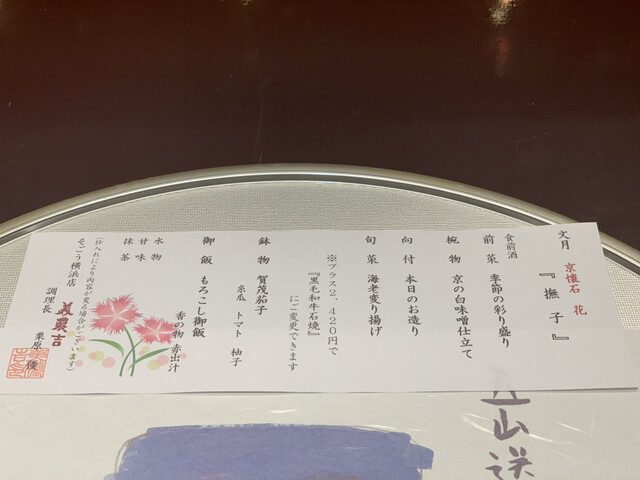 文月 京懐石 花
『撫子』
食前酒
前菜 季節の彩り盛り
椀物 京の白味噌仕立て
向付 本日のお造り
旬菜 海老変り揚げ
※プラス2,420円で
『黒毛和牛石焼』
にご変更できます
鉢物 賀茂茄子
糸瓜 トマト 柚子
御飯 もろこし御飯
香の物 赤出汁
水物
甘味
抹茶
(仕入れにより内容が変る場合がございます)
そごう横浜店 美濃吉
調理長 栗原 俊
山送